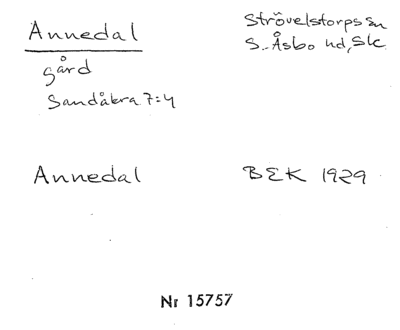 Annedal
Strövelstorps sn
S. Åsbo hd, Slc
gård
Sandåkra 7:4
Annedal
BEK 1929
Nr 15757